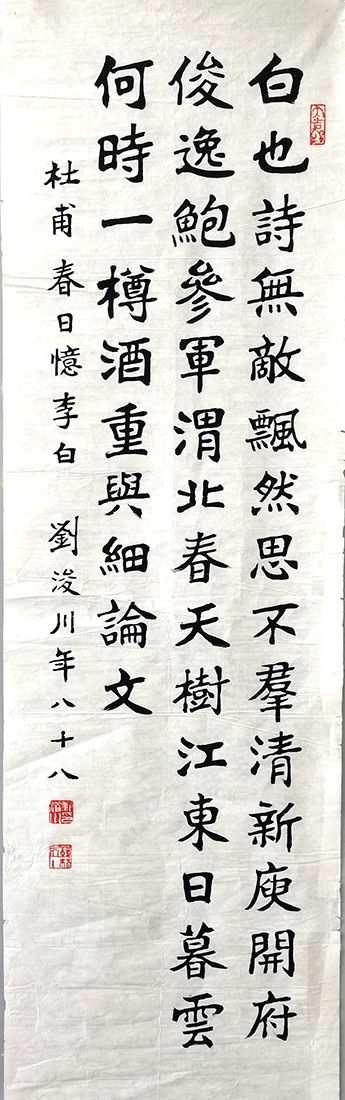 白也詩無敵飄然思不羣清新庾開府
俊逸鮑參軍渭北春天樹江東日暮雲
何時一樽酒重與細論文
杜甫春日憶李白 劉浚川年八十八